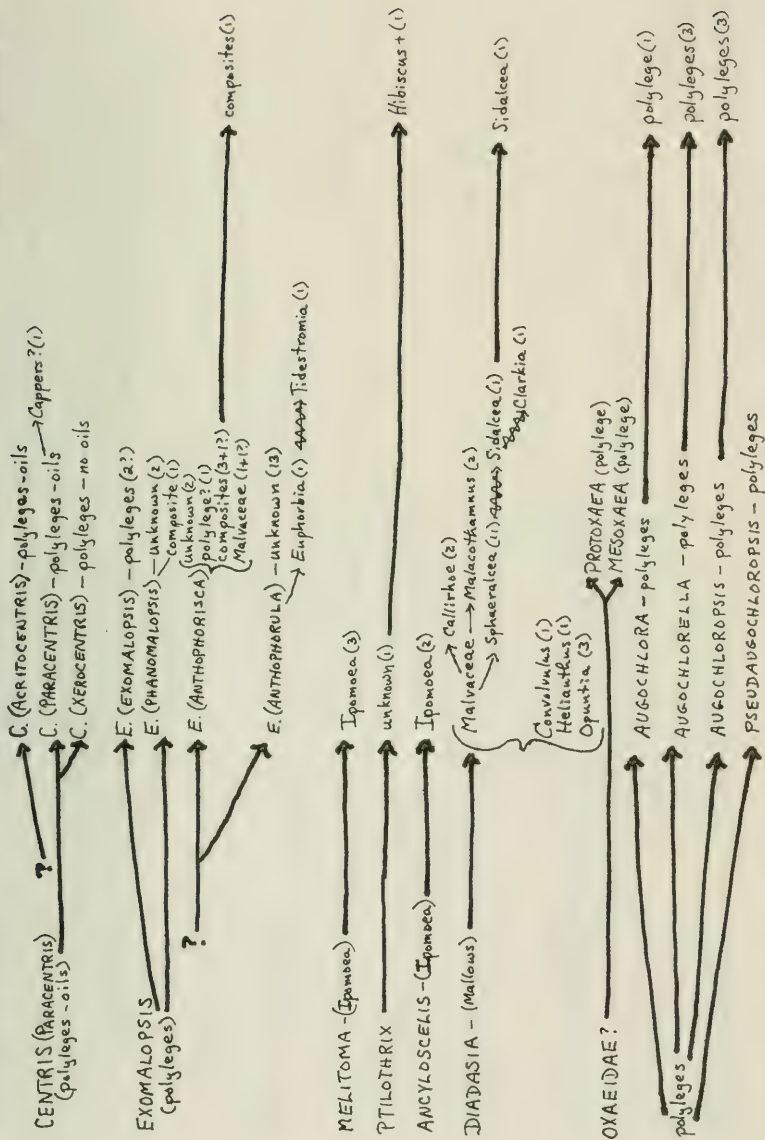 ? C. (ACRITOCENTRIS) - polyleges-oils
CENTRIS (PARACENTRIS) C. (PARACENTRIS) - polyleges-oils Cappers? (1)
(polyleges-oils) C. (XEROCENTRIS) - polyleges - no oils
EXOMALOPSIS E. (EXOMALOPSIS) - polyleges (2?)
(polyleges) E. (PHANOMALOPSIS) - unknown (2)
Composite (1)
? E. (ANTHOPHORISCA) unknown (2)
polylege? (1)
Composites (3+1?) composites (1)
Malvaceae (1+1?)
E. (ANTHOPHORULA) - unknown (13)
Euphorbia (1) Tidestromia (1)
MELITOMA - (Ipomoea) Ipomoea (3)
PTILOTHRIX unknown (1) Hibiscus + (1)
ANCYLOSCELIS - (Ipomoea) Ipomoea (2)
Callirhoe (2)
DIADASIA - (Mallows) Malvaceae Malacothamnus (2)
Sphaeralcea (11) Sidalcea (1) Sidalcea (1)
Clarkia (1)
Convolvulus (1)
Helianthus (1)
Opuntia (3)
OXAEIDAE? PROTOXAEA (polylege)
MESOXAEA (polylege)
AUGOCHLORA - polyleges polylege (1)
polyleges AUGOCHLORELLA - polyleges polyleges (3)
AUGOCHLOROPSIS - polyleges polyleges (3)
PSEUDAUGOCHLOROPSIS - polyleges